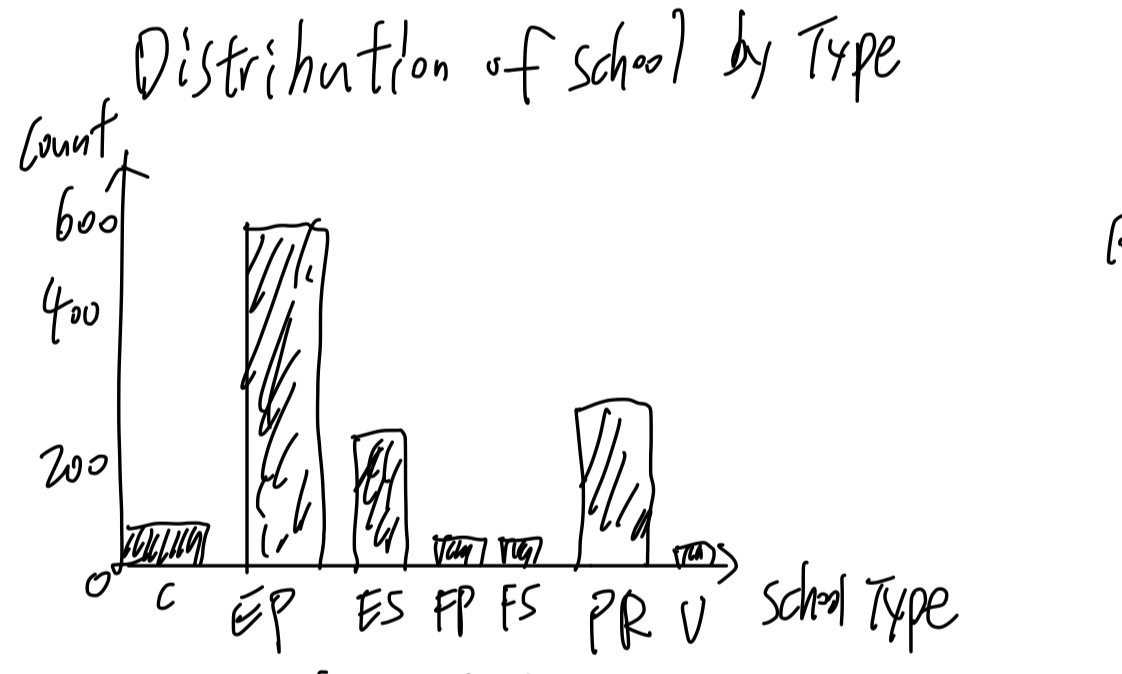 Distribution of school by Type
Count
600
400
200
0
C EP ES FP FS PR U
School Type